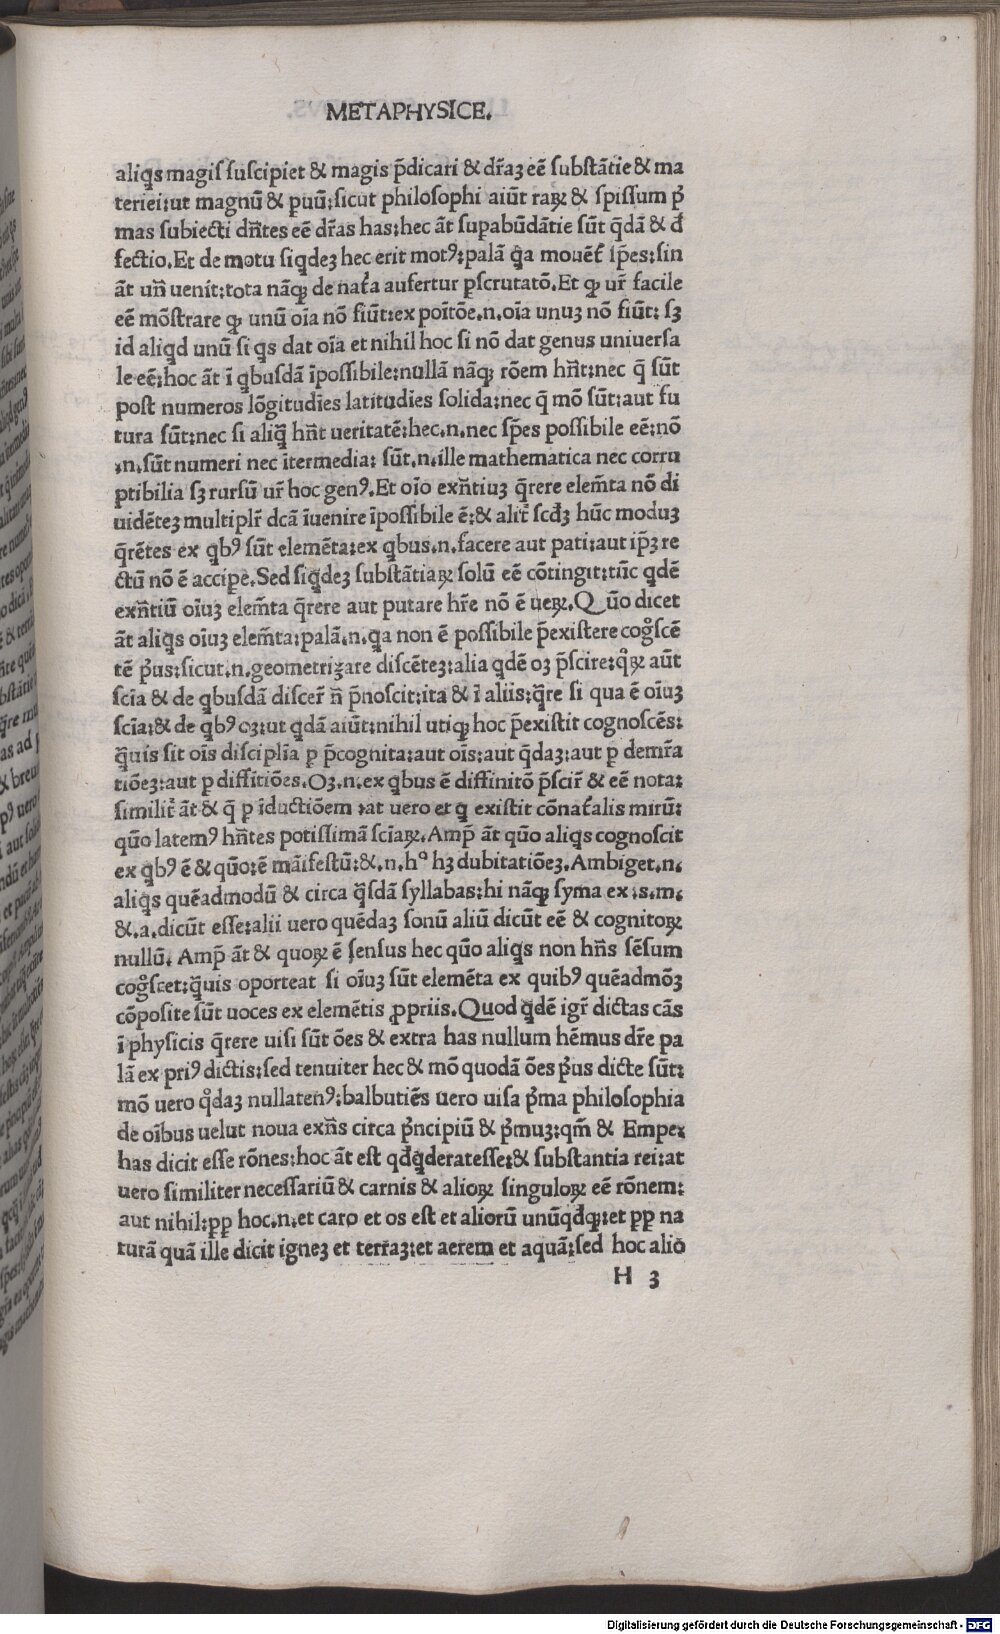 METAPHYSICE.
aliqͥs magiſ ſuſcipiet & magis p̄dicari & dr̃aꝫ eē ſubſtātie & ma
teriei: ut magnū & puū: ſicut philoſophi aiūt raꝝ & ſpiſſum p̓
mas ſubiecti dn̄tes eē dr̃as has: hec āt ſupabūdātie ſūt q̄dā & đ
fectio. Et de motu ſiqͥdeꝫ hec erit motꝰ: palā qͥa mouēt̃ ſp̄es: ſin
āt un̄ uenit: tota nāqꝫ de nat̃a aufertur pſcrutatō. Et qꝫ ur̃ facile
eē mōſtrare qꝫ unū oīa nō fiūt: ex poītōe .n. oīa unuꝫ nō fiūt: ſꝫ
id aliqͥd unū ſi qͥs dat oīa et nihil hoc ſi nō dat genus uniuerſa
le eē: hoc āt ī qͥbuſdā īpoſſibile: nullā nāqꝫ rōem hn̄t: nec q̄ ſūt
poſt numeros lōgitudīes latitudīes ſolida: nec q̄ mō ſūt: aut fu
tura ſūt: nec ſi aliqͣ hn̄t ueritatē: hec .n. nec ſp̄es poſſibile eē: nō
.n. ſūt numeri nec ītermedia: ſūt .n. ille mathematica nec corru
ptibilia ſꝫ rurſū ur̃ hoc genꝰ. Et oīo exn̄tiuꝫ q̄rere elem̄ta nō di
uidēteꝫ multiplr̃ dc̄a īuenire īpoſſibile ē: & alit̃ ſcđꝫ hūc moduꝫ
q̄rētes ex qͥbꝰ ſūt elemēta: ex qͥbus .n. facere aut pati: aut ip̄ꝫ re
ctū nō ē accipe. Sed ſiqͥdeꝫ ſubſtātiaꝝ ſolū eē cōtingit: tūc qͥdē
exn̄tiū oīuꝫ elem̄ta q̄rere aut putare hr̃e nō ē ueꝝ. Quō dicet
āt aliqͥs oīuꝫ elem̄ta: palā .n. qͥa non ē poſſibile p̄exiſtere cogͦſcē
tē p̓us: ſicut .n. geometriꝫare diſcēteꝫ: alia qͥdē oꝫ p̄ſcire: qͦꝝ aūt
ſcīa & de qͥbuſdā diſcer̃ n̄ p̄noſcit: ita & ī aliis: q̄re ſi qua ē oīuꝫ
ſcīa: & de qͥbꝰ oꝫ: ut qͥdā aiūt: nihil utiqꝫ hoc p̄exiſtit cognoſcēs:
qͣuis ſit oīs diſciplīa p p̄cognita: aut oīs: aut q̄daꝫ: aut p demr̃a
tiōeꝫ: aut p diffitiōes. Oꝫ .n. ex qͥbus ē diffinitō p̄ſcir̃ & eē nota:
ſimilit̃ āt & q̄ p īductiōem: at uero et qͥ exiſtit cōnat̃alis mirū:
qūo latemꝰ hn̄tes potiſſimā ſcīaꝝ. Amp̄ āt qūo aliqͥs cognoſcit
ex qͥbꝰ ē & qūo: ē māifeſtū: &.n. hͦ hꝫ dubitatiōeꝫ. Ambiget .n.
aliqͥs quēadmodū & circa qͣſdā ſyllabas: hi nāqꝫ ſyma ex .s. m.
&.a. dicūt eſſe: alii uero quēdaꝫ ſonū aliū dicūt eē & cognitoꝝ
nullū. Amp̄ āt & quoꝝ ē ſenſus hec qūo aliqͥs non hn̄s ſēſum
cogͦſcet: qͣuis oporteat ſi oīuꝫ ſūt elemēta ex quibꝰ quēadmōꝫ
cōpoſite ſūt uoces ex elemētis ꝓpriis. Quod qͥdē igr̃ dictas cās
ī phyſicis q̄rere uiſi ſūt ōes & extra has nullum hēmus dr̃e pa
lā ex priꝰ dictis: ſed tenuiter hec & mō quodā ōes p̓us dicte ſūt:
mō uero qͦdaꝫ nullatenꝰ: balbutiēs uero uiſa p̓ma philoſophia
de oībus uelut noua exn̄s circa p̓ncipiū & p̓muꝫ: qm̄ & Empe.
has dicit eſſe rōnes: hoc āt eſt qđ qͥđ erat eſſe: & ſubſtantia rei: at
uero ſimiliter neceſſariū & carnis & alioꝝ ſinguloꝝ eē rōnem:
aut nihil: pp hoc .n. et caro et os eſt et aliorū unūqđqꝫ: et pp na
turā quā ille dicit igneꝫ et terraꝫ: et aerem et aquā: ſed hoc alio
H 3
Digitalisierung gefördert durch die Deutsche Forschungsgemeinschaft - DFG